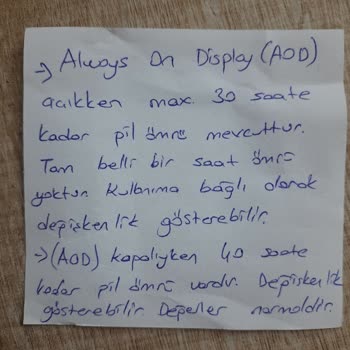 → Always On Display (AOD)
açıkken max. 30 saate
kadar pil ömrü mevcuttur.
Tam belli bir saat ömrü
yoktur. Kullanıma bağlı olarak
değişkenlik gösterebilir.
→ (AOD) kapalıyken 40 saate
kadar pil ömrü vardır. Değişkenlik
gösterebilir. Değerler normaldir.